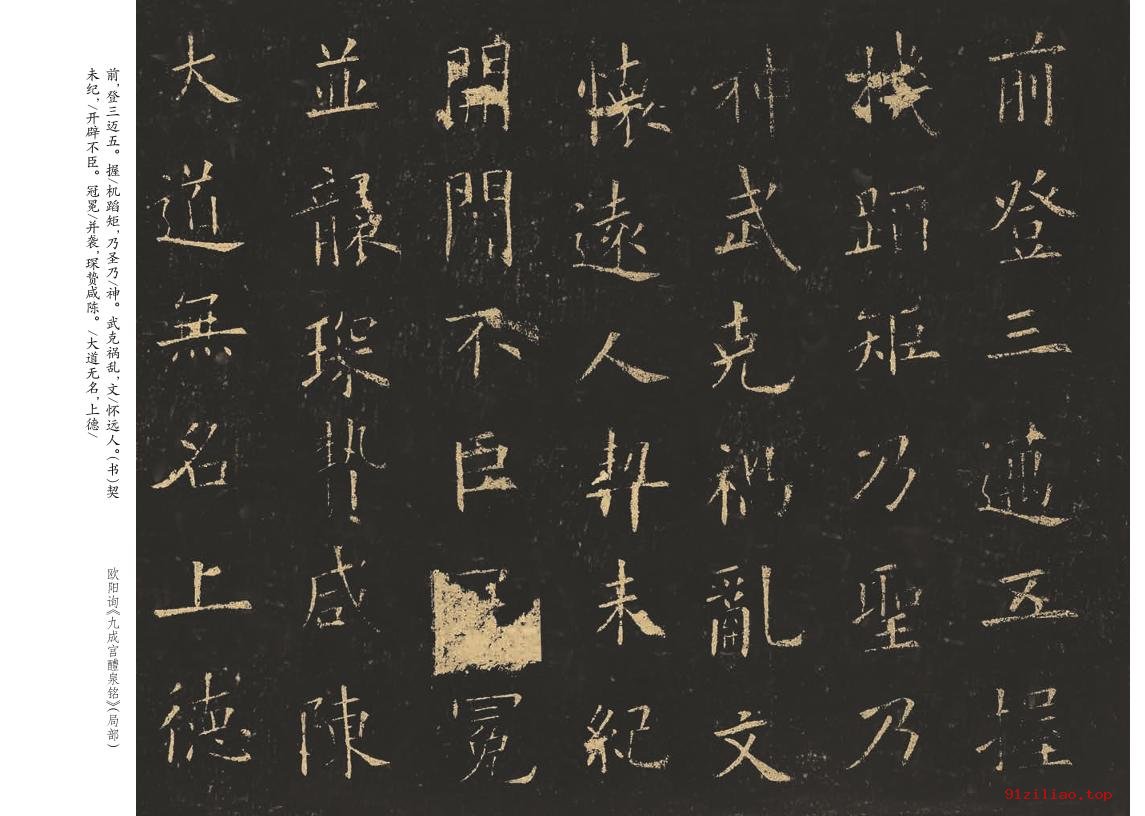 前登三邁五握
機蹈矩乃聖乃
神武克禍亂文
懷遠人契未紀
開闢不臣冕
並襲琛贄咸陳
大道無名上德
前，登三迈五。握/机蹈矩，乃圣乃/神。武克祸乱，文/怀远人。（书）契
未纪，/开辟不臣。冠冕/并袭，琛贽咸陈。/大道无名，上德/
欧阳询《九成宫醴泉铭》（局部）
91ziliao.top